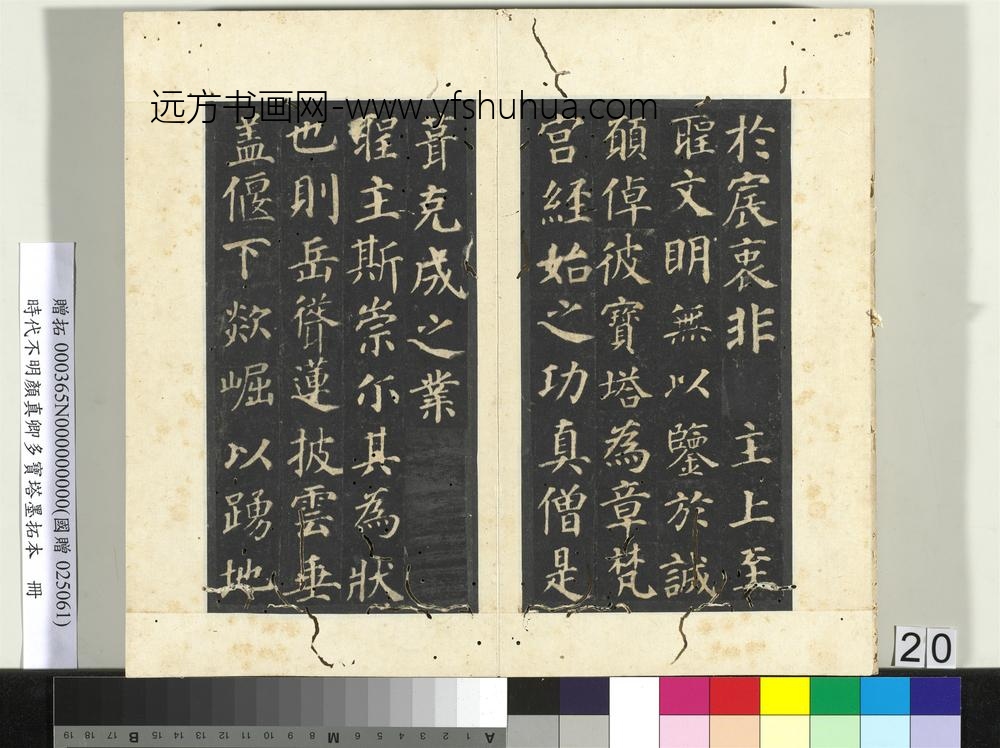 远方书画网-www.yfshuhua.com
於宸衷非 主上至
聖文明無以鑒於誠
願倬彼寶塔為章梵
宮經始之功真僧是
葺克成之業
聖主斯崇尒其為狀
也則岳聳蓮披雲垂
盖偃下欻崛以踴地
贈拓 000365N000000000(國贈 025061)
時代不明顏真卿多寶塔墨拓本 冊
20
19 18 17 16 15 14 13 12 11 10 9 8 7 6 5 4 3 2 1
B M A